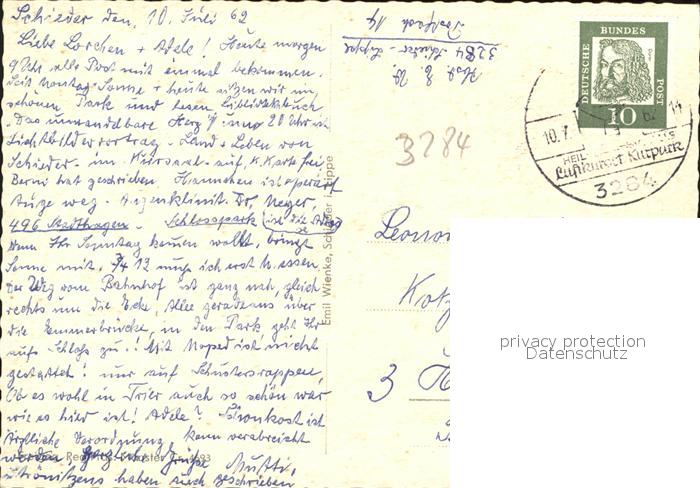 Schieder den, 10. Juli 62
Liebe Lorchen + Adele! Heute morgen
9 Uhr alle Post mit einmal bekommen.
Seit Montag Sonne + heute sitzen wir im
schönen Park und lesen
"Das unwandelbare Herz"! 20 Uhr ist
Lichtbildervortrag - Land + Leben von
Schieder - im Kursaal - auf K. Karte frei
Berni hat geschrieben. Hannchen ist operiert
Auge weg. Augenklinik Dr. Meyer,
496 Stadthagen. Schlosspark (ist die
Wenn Ihr Sonntag kommen wollt, bringt
Sonne mit, 3/4 12 muß ich erst M. essen
Der Weg vom Bahnhof ist ganz nah, gleich
rechts um die Ecke, Allee geradeaus über
die Emmerbrücke, in den Park, geht Ihr
aufs Schloß zu.! Mit Moped ist nicht
gestattet! nur auf Schustersrappen,
Ob es wohl in Trier auch so schön war
wie es hier ist! Adele? Schonkost ist
Ärztliche Verordnung, kann verabreicht
werden, Herzliche Grüße Mutti,
haben auch geschrieben
Postfach 14
3284 Schieder - Lippe
3284
Emil Wienke, Schieder i. Lippe
DEUTSCHE BUNDES POST
Dürer
10
10.7.
62 14
HEIL
Luftkurort Kurpark
3284
Leonor
Kotz
3 H
privacy protection
Datenschutz